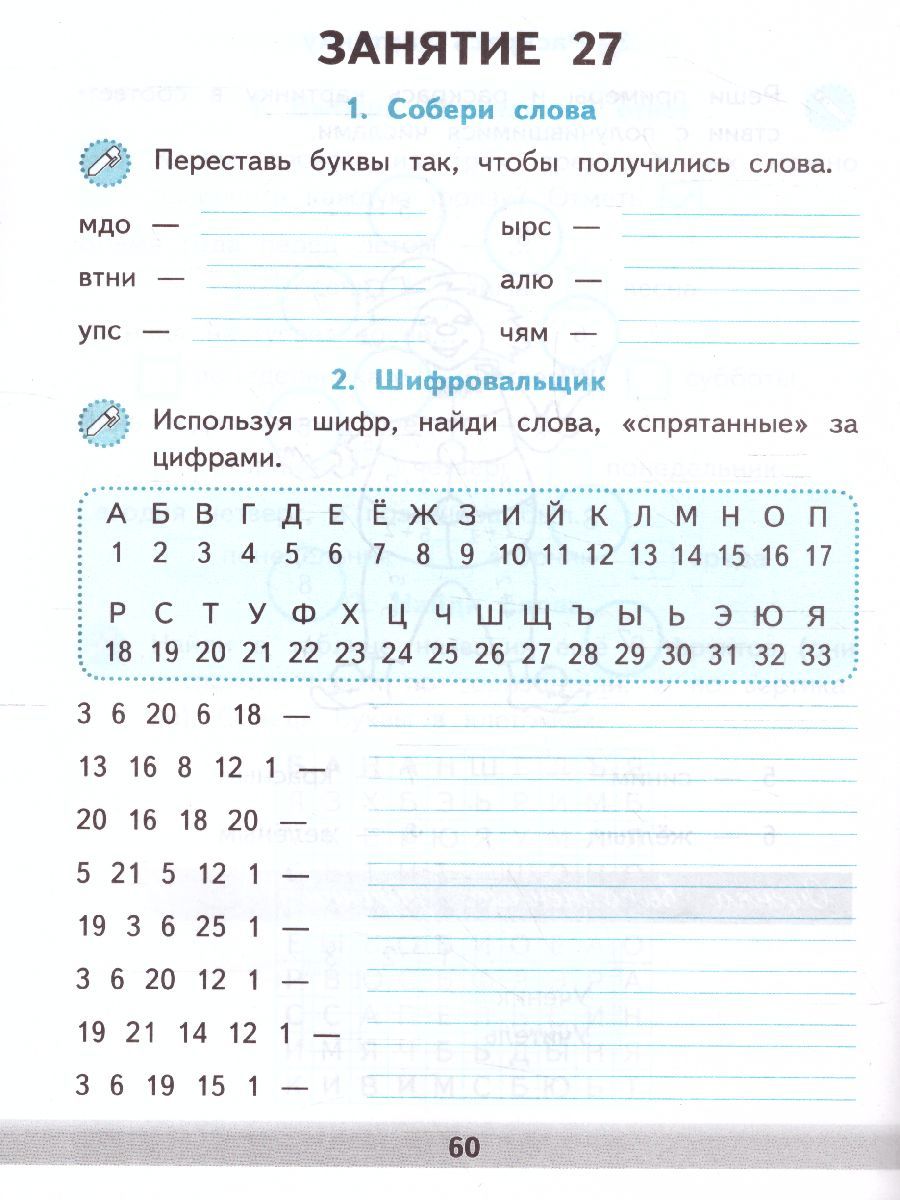 ЗАНЯТИЕ 27
1. Собери слова
Переставь буквы так, чтобы получились слова.
мдо — ырс —
втни — алю —
упс — чям —
2. Шифровальщик
Используя шифр, найди слова, «спрятанные» за
цифрами.
А Б В Г Д Е Ё Ж З И Й К Л М Н О П
1 2 3 4 5 6 7 8 9 10 11 12 13 14 15 16 17
Р С Т У Ф Х Ц Ч Ш Щ Ъ Ы Ь Э Ю Я
18 19 20 21 22 23 24 25 26 27 28 29 30 31 32 33
3 6 20 6 18 —
13 16 8 12 1 —
20 16 18 20 —
5 21 5 12 1 —
19 3 6 25 1 —
3 6 20 12 1 —
19 21 14 12 1 —
3 6 19 15 1 —
60